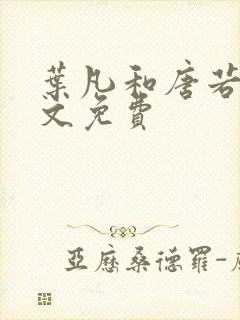 葉凡和唐若
文免費
亞歷桑德羅-